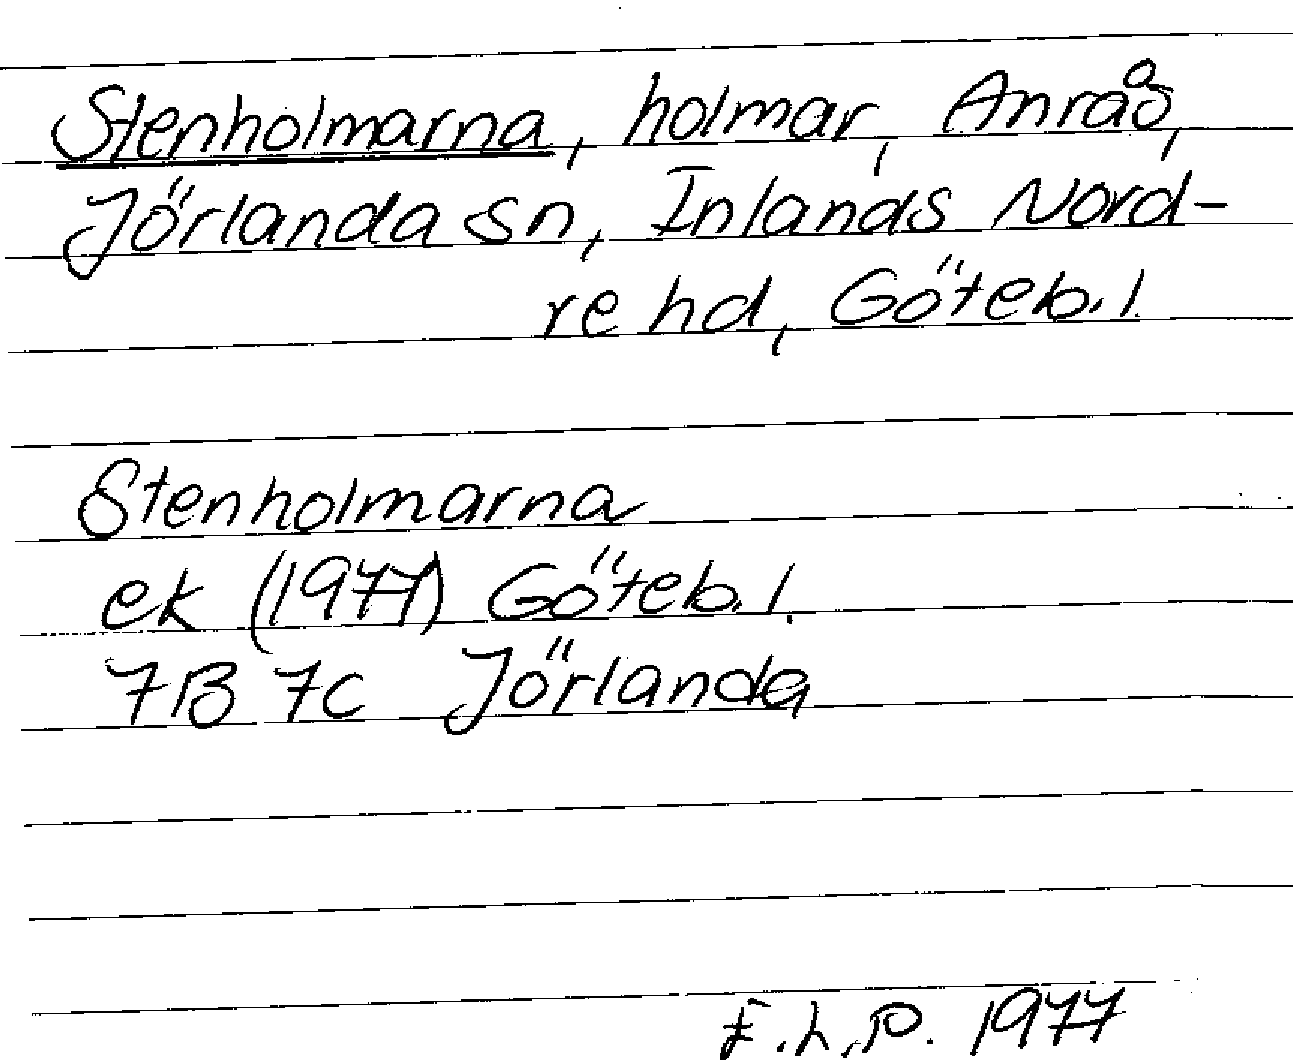 Stenholmarna, holmar, Anrås,
Jörlanda sn, Inlands Nord-
re hd, Göteb. l.
Stenholmarna
ek (1977) Göteb. l.
7B 7c Jörlanda
E.L.P. 1977